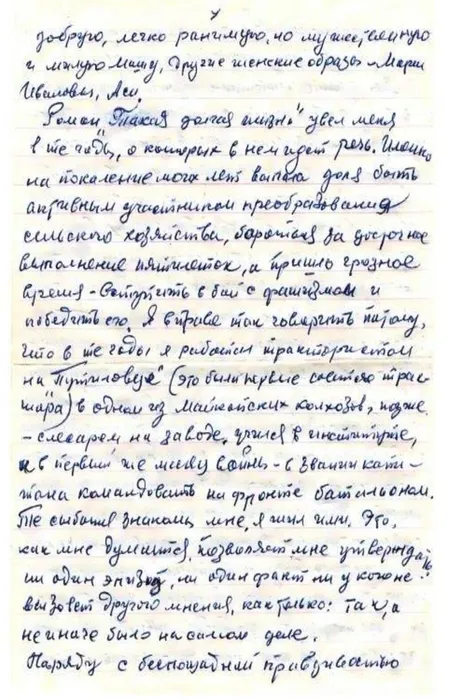 добрую, легко ранимую, но мужественную
и милую Машу, другие женские образы – Марии
Ивановны, Аси.
Роман "Такая долгая жизнь" увел меня
в те годы, о которых в нем идет речь. Именно
на поколение моих лет выпала доля быть
активным участником преобразования
сельского хозяйства, бороться за досрочное
выполнение пятилеток, а пришло грозное
время – вступить в бой с фашизмом и
победить его. Я вправе так говорить потому,
что в те годы я работал трактористом
на "Путиловце" (это были первые советские трак-
тора) в одном из Майкопских колхозов, позже
– слесарем на заводе, учился в институте,
и в первый же месяц войны – в звании капи-
тана командовать на фронте батальоном.
Те события знакомы мне, я жил ими. Это,
как мне думается, позволяет мне утверждать
ни один эпизод, ни один факт ни у кого не
вызовет другого мнения, как только: так, а
не иначе было на самом деле.
Наряду с беспощадной правдивостью